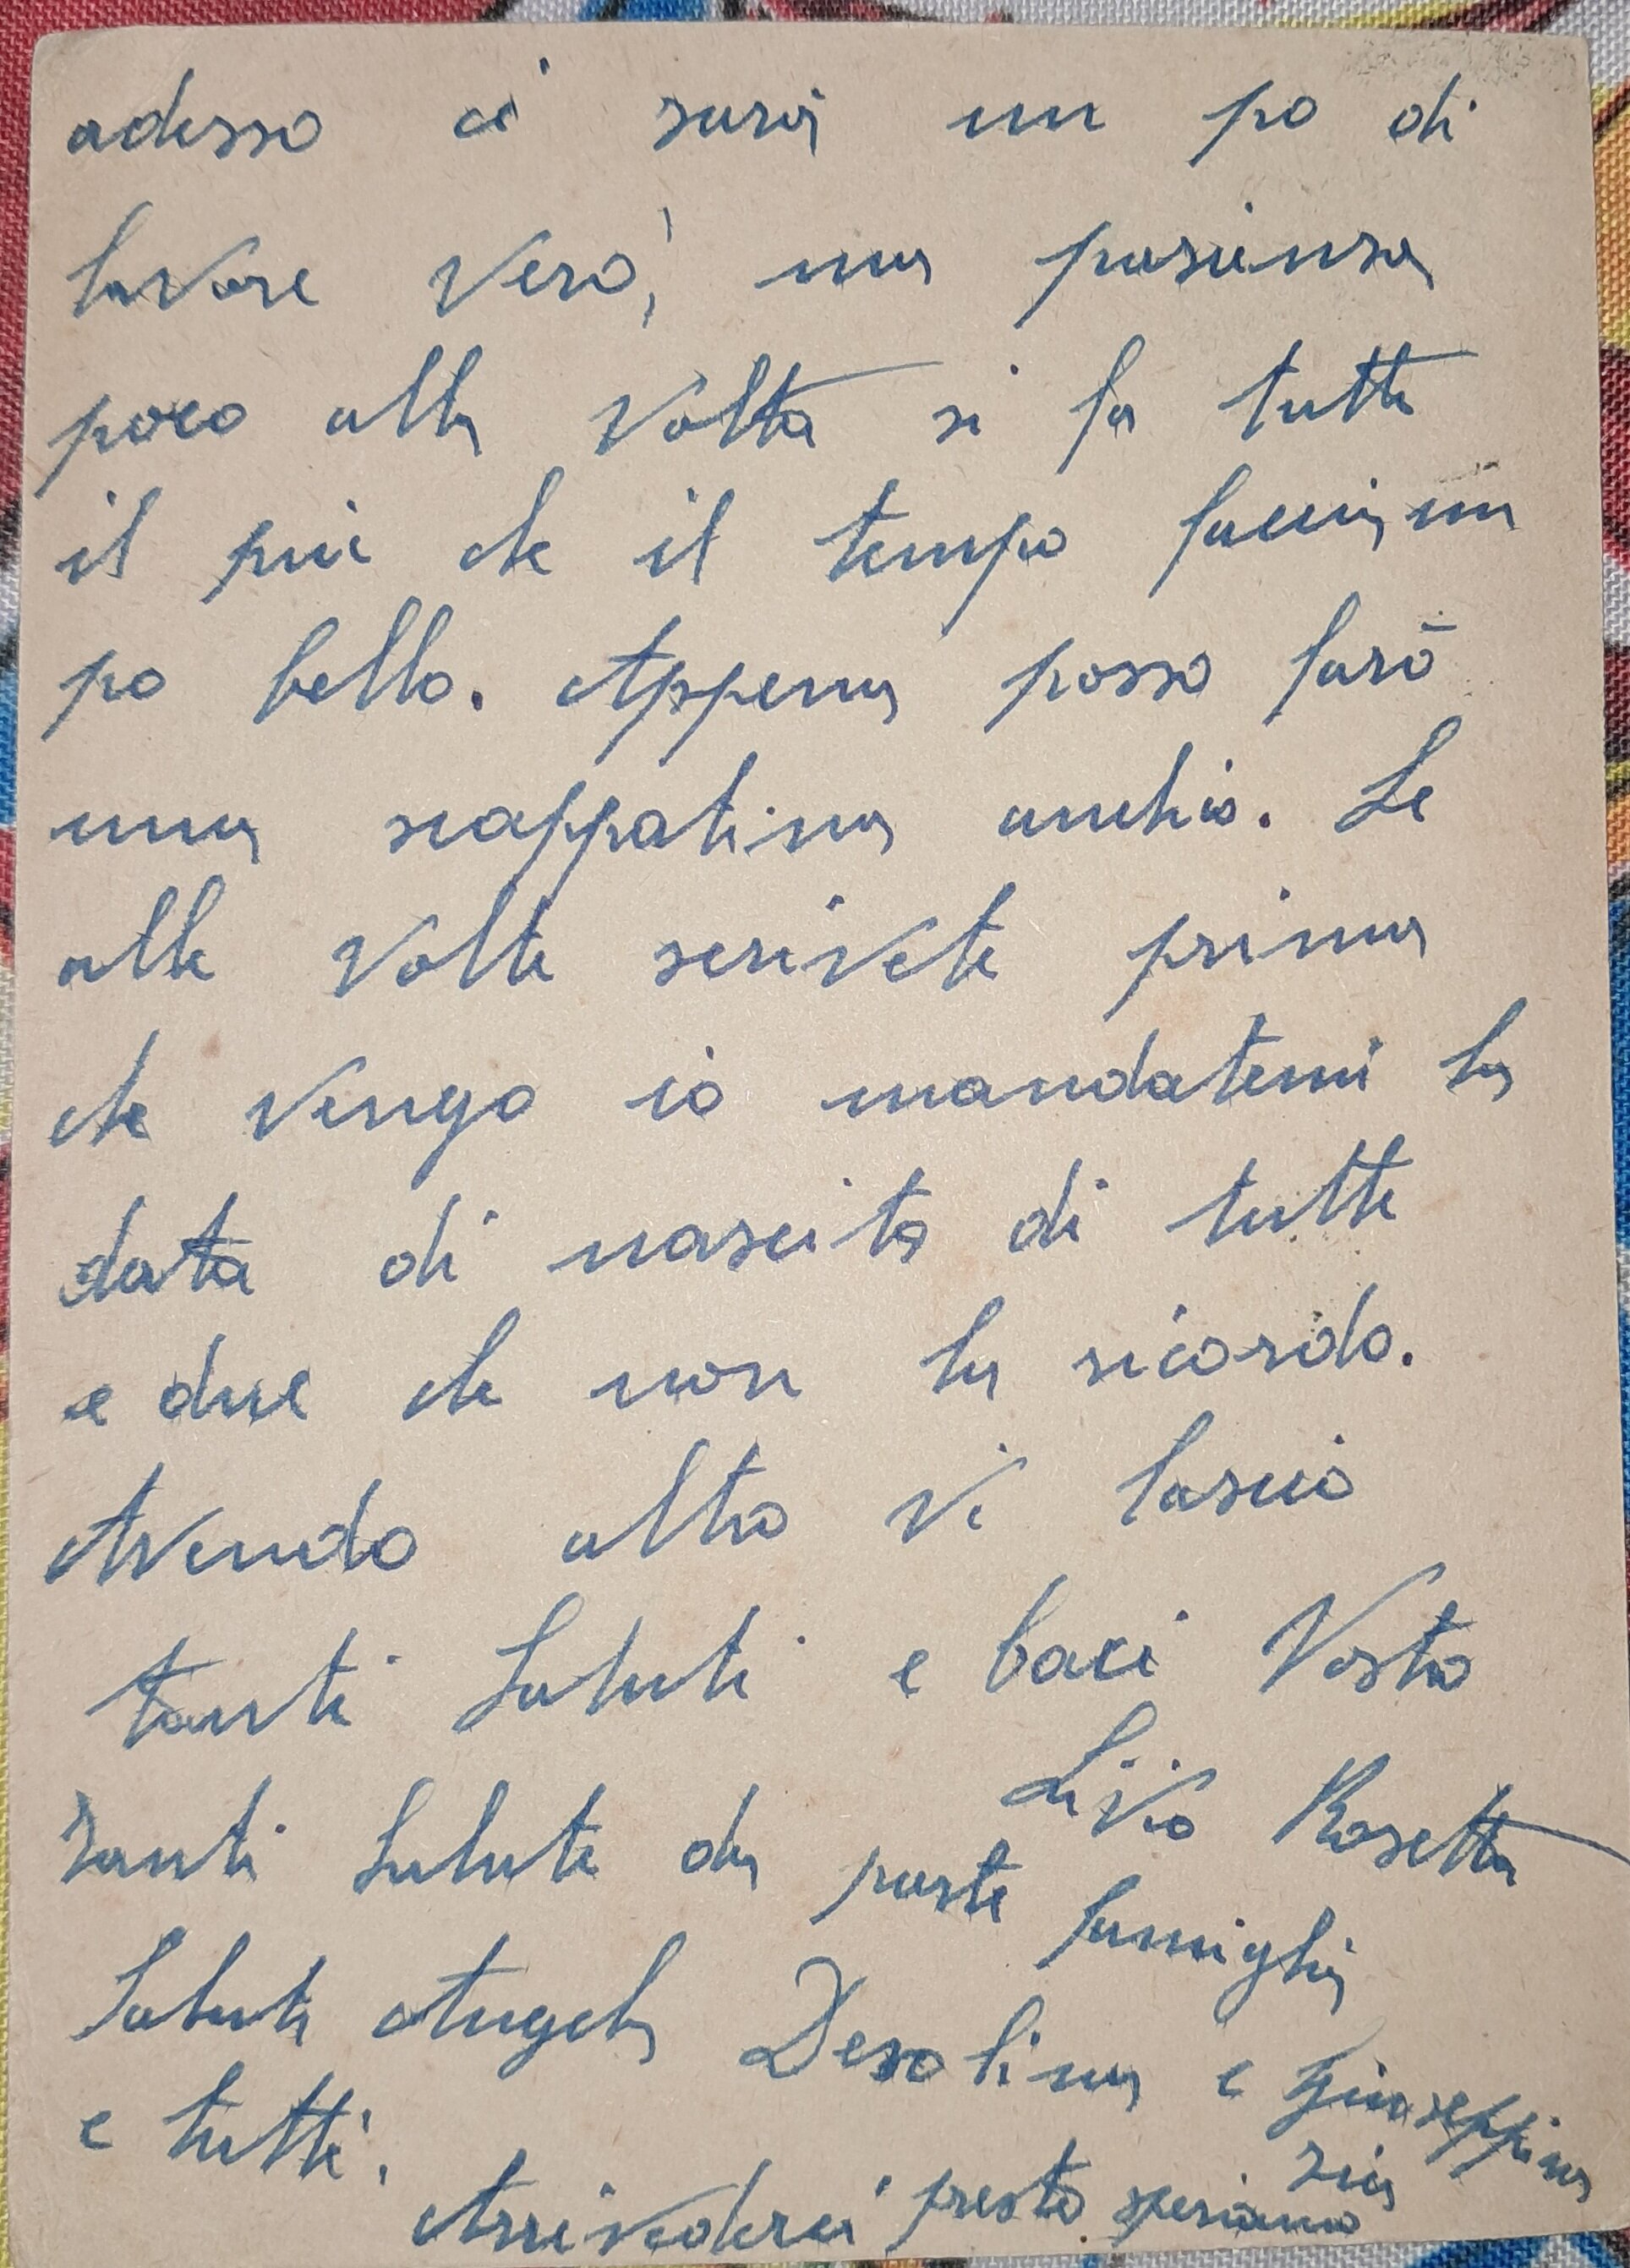 adesso ci sarà un po di
lavore vero, ma pasiensa
poco alla volta si fa tutte
il più che il tempo faccia un
po bello. Appena posso farò
una scappatina anchio. Se
alle volte scrivete prima
che vengo io mandatemi la
data di nascita di tutte
e due che non la ricordo.
Avendo altro vi lascio
tanti Saluti e baci Vostro
Livio Rosetta
Tanti Salute da parte famiglia
Saluti Angela Desolina e Giuseppina
e tutti. zia
Arrivederci presto speriamo